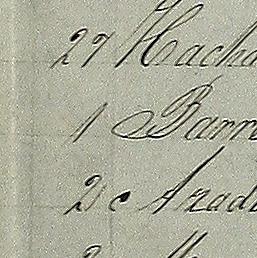 27 Hacha
1 Barr
2 c Azad